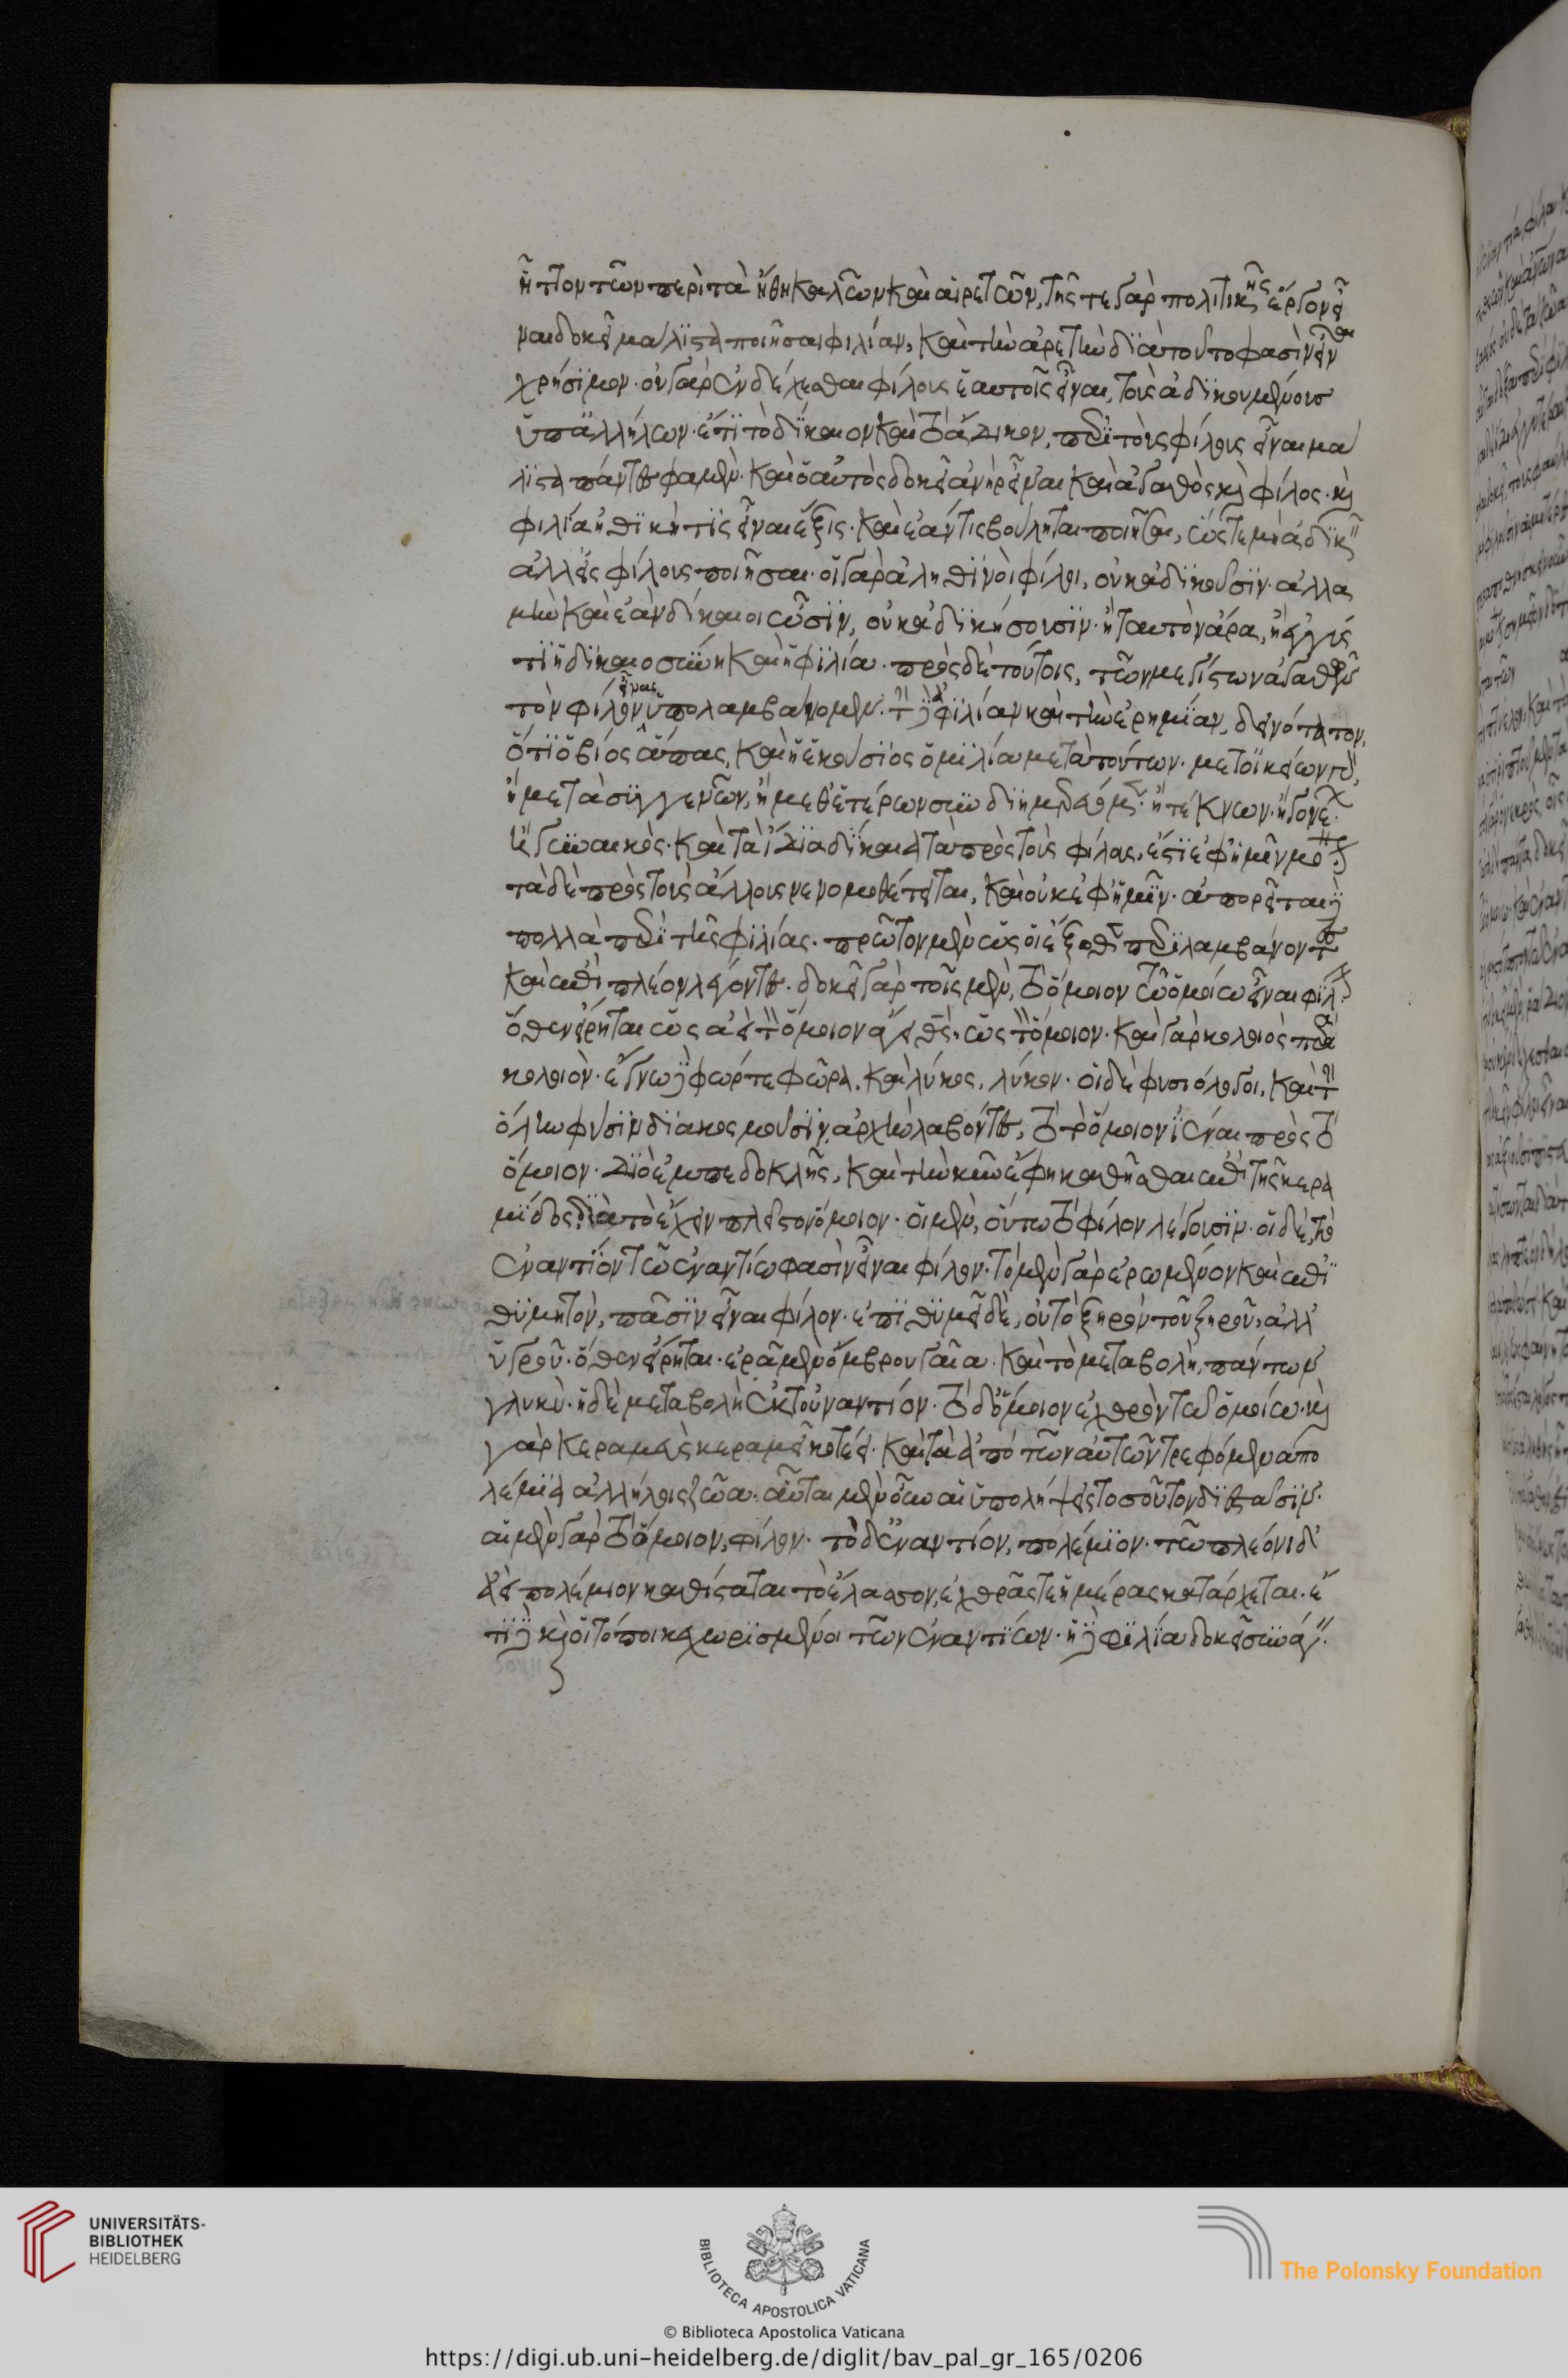 ἧττον τῶν περὶ τὰ ἤθη καλῶν καὶ αἱρετῶν, τῆς τε γὰρ πολιτικῆς ἔργον εἶ
ναι δοκεῖ μάλιστα ποιῆσαι φιλίαν, καὶ τὴν ἀρετὴν διὰ τοῦτο φασὶν εἶναι
χρήσιμον· οὐ γὰρ ἐνδέχεσθαι φίλους ἑαυτοῖς εἶναι, τοὺς ἀδικουμένους
ὑπ' ἀλλήλων· ἔτι τὸ δίκαιον καὶ τὸ ἄδικον, περὶ τοὺς φίλους εἶναι μά
λιστα πάντες φαμέν· καὶ ὁ αὐτὸς δοκεῖ ἀνὴρ εἶναι καὶ ἀγαθὸς καὶ φίλος· καὶ
φιλία ἠθική τις εἶναι ἕξις· καὶ ἐάν τις βούληται ποιῆσαι, ὥστε μὴ ἀδικεῖν
ἀλλ' εἰς φίλους ποιῆσαι· οἱ γὰρ ἀληθινοὶ φίλοι, οὐκ ἀδικοῦσιν· ἀλλὰ
μὴν καὶ ἐὰν δίκαιοι ὦσιν, οὐκ ἀδικήσουσιν· ἢ ταυτὸν ἄρα, ἢ ἐγγύς
τι ἡ δικαιοσύνη καὶ ἡ φιλία· πρὸς δὲ τούτοις, τῶν μεγίστων ἀγαθῶν
τὸν φίλον εἶναι ὑπολαμβάνομεν· τὴν δὲ ἀφιλίαν καὶ τὴν ἐρημίαν, δεινότατον,
ὅτι ὁ βίος ἅπας, καὶ ἡ ἑκούσιος ὁμιλία μετὰ τούτων· μετ' οἰκείων γὰρ,
ἢ μετὰ συγγενῶν, ἢ μεθ' ἑτέρων συνδιημερεύομεν· ἢ τέκνων· ἢ γονέων·
ἢ γυναικός· καὶ τὰ ἴδια δίκαια τὰ πρὸς τοὺς φίλους, ἐστὶ ἐφ' ἡμῖν μόνον·
τὰ δὲ πρὸς τοὺς ἄλλους νενομοθέτηται, καὶ οὐκ ἐφ' ἡμῖν· ἀπορεῖται δὲ
πολλὰ περὶ τῆς φιλίας· πρῶτον μὲν ὡς οἱ ἔξωθεν περιλαμβάνοντες
καὶ ἐπὶ πλέον λέγοντες· δοκεῖ γὰρ τοῖς μὲν, τὸ ὅμοιον τῷ ὁμοίῳ εἶναι φίλον·
ὅθεν εἴρηται ὡς αἰεὶ τὸν ὅμοιον ἄγει θεὸς ὡς τὸν ὅμοιον· καὶ γὰρ κολοιὸς παρὰ
κολοιὸν· ἔγνω δὲ φώρ τε φῶρα, καὶ λύκος, λύκον· οἱ δὲ φυσιόλογοι, καὶ τὴν
ὅλην φύσιν διακοσμοῦσιν, ἀρχὴν λαβόντες, τὸ τὸ ὅμοιον ἰέναι πρὸς τὸ
ὅμοιον· διὸ ἐμπεδοκλῆς, καὶ τὴν κύν' ἔφη καθῆσθαι ἐπὶ τῆς κερα
μίδος, διὰ τὸ ἔχειν πλεῖστον ὅμοιον· οἱ μὲν, οὕτω τὸ φίλον λέγουσιν· οἱ δὲ, τὸ
ἐναντίον τῷ ἐναντίῳ φασὶν εἶναι φίλον· τὸ μὲν γὰρ ἐρώμενον καὶ ἐπι
θυμητὸν, πᾶσιν εἶναι φίλον· ἐπιθυμεῖ δὲ, οὐ τὸ ξηρὸν τοῦ ξηροῦ, ἀλλ'
ὑγροῦ· ὅθεν εἴρηται· ἐρᾷ μὲν ὄμβρου γαῖα· καὶ τὸ μεταβολὴ, πάντων
γλυκὺ· ἡ δὲ μεταβολὴ ἐκ τοὐναντίον· τὸ δ' ὅμοιον ἐχθρὸν τῷ ὁμοίῳ· καὶ
γὰρ κεραμεὺς κεραμεῖ κοτέει· καὶ τὰ ἀπὸ τῶν αὐτῶν τρεφόμενα πο
λέμια ἀλλήλοις ζῶα· αὗται μὲν οὖν αἱ ὑπολήψεις τοσοῦτον διεστᾶσιν·
αἱ μὲν γὰρ τὸ ὅμοιον, φίλον· τὸ δ' ἐναντίον, πολέμιον· τῷ πλέονι δ'
αἰεὶ πολέμιον καθίσταται τὸ ἔλασσον, ἐχθρᾶς τε ἡμέρας κατάρχεται· ἔ
τι δὲ καὶ οἱ τόποι κεχωρισμένοι τῶν ἐναντίων· ἡ δὲ φιλία δοκεῖ συνάγειν·
UNIVERSITÄTS-
BIBLIOTHEK
HEIDELBERG
BIBLIOTECA APOSTOLICA VATICANA
The Polonsky Foundation
© Biblioteca Apostolica Vaticana
https://digi.ub.uni-heidelberg.de/diglit/bav_pal_gr_165/0206